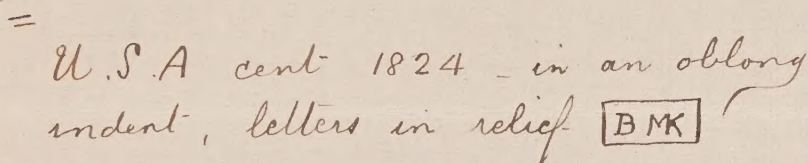 =
U.S.A cent 1824 - in an oblong
indent, letters in relief - BMK